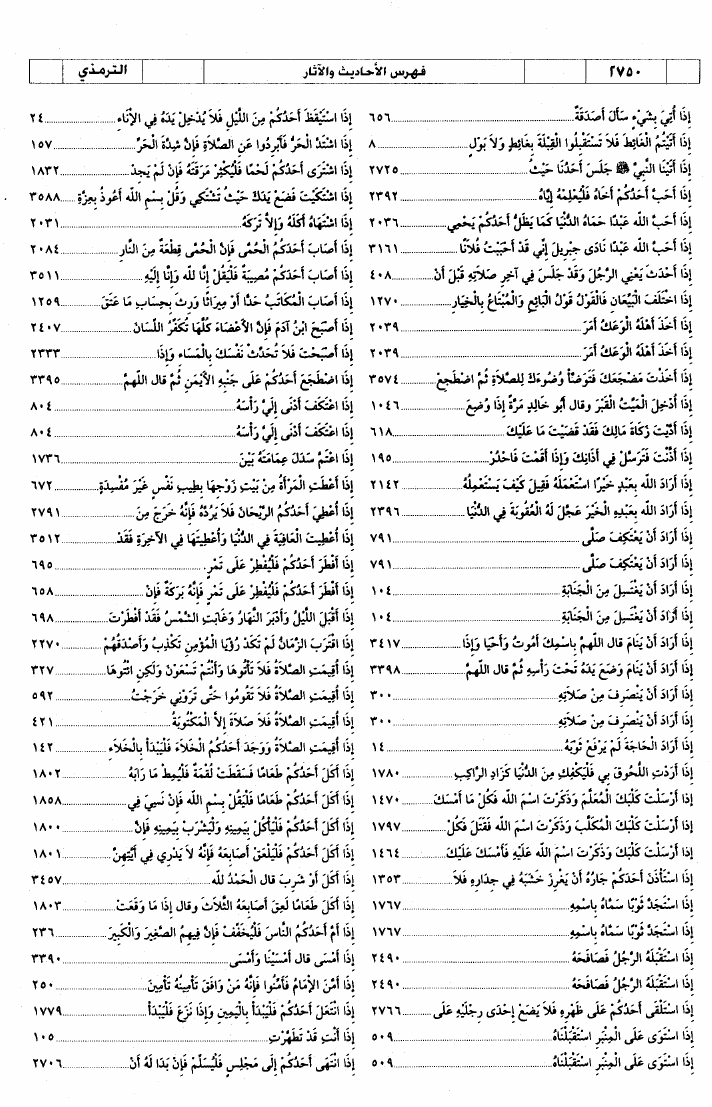 ٢٧٥٠ فهرس الأحاديث والآثار الترمذي
إِذَا أُتِيَ بِشَيْءٍ سَأَلَ أَصَدَقَةٌ ٦٥٦
إِذَا أَتَيْتُمُ الْغَائِطَ فَلَا تَسْتَقْبِلُوا الْقِبْلَةَ بِغَائِطٍ وَلَا بَوْلٍ ٨
إِذَا أَتَيْنَا النَّبِيَّ ﷺ جَلَسَ أَحَدُنَا حَيْثُ ٢٧٢٥
إِذَا أَحَبَّ أَحَدُكُمْ أَخَاهُ فَلْيُعْلِمْهُ إِيَّاهُ ٢٣٩٢
إِذَا أَحَبَّ اللَّه عَبْدًا حَمَاهُ الدُّنْيَا كَمَا يَظَلُّ أَحَدُكُمْ يَحْمِي ٢٠٣٦
إِذَا أَحَبَّ اللَّه عَبْدًا نَادَى جِبْرِيلَ إِنِّي قَدْ أَحْبَبْتُ فُلَانًا ٣١٦١
إِذَا أَحْدَثَ يَعْنِي الرَّجُلَ وَقَدْ جَلَسَ فِي آخِرِ صَلَاتِهِ قَبْلَ أَنْ ٤٠٨
إِذَا اخْتَلَفَ الْبَيِّعَانِ فَالْقَوْلُ قَوْلُ الْبَائِعِ وَالْمُبْتَاعُ بِالْخِيَارِ ١٢٧٠
إِذَا أَخَذَ أَهْلَهُ الْوَعَكُ أَمَرَ ٢٠٣٩
إِذَا أَخَذَ أَهْلَهُ الْوَعَكُ أَمَرَ ٢٠٣٩
إِذَا أَخَذْتَ مَضْجَعَكَ فَتَوَضَّأْ وُضُوءَكَ لِلصَّلَاةِ ثُمَّ اضْطَجِعْ ٣٥٧٤
إِذَا أُدْخِلَ الْمَيِّتُ الْقَبْرَ وقال أَبُو خَالِدٍ مَرَّةً إِذَا وُضِعَ ١٠٤٦
إِذَا أَدَّيْتَ زَكَاةَ مَالِكَ فَقَدْ قَضَيْتَ مَا عَلَيْكَ ٦١٨
إِذَا أَذَّنْتَ فَتَرَسَّلْ فِي أَذَانِكَ وَإِذَا أَقَمْتَ فَاحْدُرْ ١٩٥
إِذَا أَرَادَ اللَّه بِعَبْدٍ خَيْرًا اسْتَعْمَلَهُ فَقِيلَ كَيْفَ يَسْتَعْمِلُهُ ٢١٤٢
إِذَا أَرَادَ اللَّه بِعَبْدِهِ الْخَيْرَ عَجَّلَ لَهُ الْعُقُوبَةَ فِي الدُّنْيَا ٢٣٩٦
إِذَا أَرَادَ أَنْ يَعْتَكِفَ صَلَّى ٧٩١
إِذَا أَرَادَ أَنْ يَعْتَكِفَ صَلَّى ٧٩١
إِذَا أَرَادَ أَنْ يَغْتَسِلَ مِنَ الْجَنَابَةِ ١٠٤
إِذَا أَرَادَ أَنْ يَغْتَسِلَ مِنَ الْجَنَابَةِ ١٠٤
إِذَا أَرَادَ أَنْ يَنَامَ قال اللهمَّ بِاسْمِكَ أَمُوتُ وَأَحْيَا وَإِذَا ٣٤١٧
إِذَا أَرَادَ أَنْ يَنَامَ وَضَعَ يَدَهُ تَحْتَ رَأْسِهِ ثُمَّ قال اللهمَّ ٣٣٩٨
إِذَا أَرَادَ أَنْ يَنْصَرِفَ مِنْ صَلَاتِهِ ٣٠٠
إِذَا أَرَادَ أَنْ يَنْصَرِفَ مِنْ صَلَاتِهِ ٣٠٠
إِذَا أَرَادَ الْحَاجَةَ لَمْ يَرْفَعْ ثَوْبَهُ ١٤
إِذَا أَرَدْتِ اللُّحُوقَ بِي فَلْيَكْفِكِ مِنَ الدُّنْيَا كَزَادِ الرَّاكِبِ ١٧٨٠
إِذَا أَرْسَلْتَ كَلْبَكَ الْمُعَلَّمَ وَذَكَرْتَ اسْمَ اللَّه فَكُلْ مَا أَمْسَكَ ١٤٧٠
إِذَا أَرْسَلْتَ كَلْبَكَ الْمُكَلَّبَ وَذَكَرْتَ اسْمَ اللَّه فَقَتَلَ فَكُلْ ١٧٩٧
إذا أَرْسَلْتَ كَلْبَكَ وَذَكَرْتَ اسْمَ اللَّه عَلَيْهِ فَأَمْسَكَ عَلَيْكَ ١٤٦٤
إِذَا اسْتَأْذَنَ أَحَدَكُمْ جَارُهُ أَنْ يَغْرِزَ خَشَبَهُ فِي جِدَارِهِ فَلَا ١٣٥٣
إِذَا اسْتَجَدَّ ثَوْبًا سَمَّاهُ بِاسْمِهِ ١٧٦٧
إِذَا اسْتَجَدَّ ثَوْبًا سَمَّاهُ بِاسْمِهِ ١٧٦٧
إِذَا اسْتَقْبَلَهُ الرَّجُلُ فَصَافَحَهُ ٢٤٩٠
إِذَا اسْتَقْبَلَهُ الرَّجُلُ فَصَافَحَهُ ٢٤٩٠
إِذَا اسْتَلْقَى أَحَدُكُمْ عَلَى ظَهْرِهِ فَلَا يَضَعْ إِحْدَى رِجْلَيْهِ عَلَى ٢٧٦٦
إِذَا اسْتَوَى عَلَى الْمِنْبَرِ اسْتَقْبَلْنَاهُ ٥٠٩
إِذَا اسْتَوَى عَلَى الْمِنْبَرِ اسْتَقْبَلْنَاهُ ٥٠٩
إِذَا اسْتَيْقَظَ أَحَدُكُمْ مِنَ اللَّيْلِ فَلَا يُدْخِلْ يَدَهُ فِي الْإِنَاءِ ٢٤
إِذَا اشْتَدَّ الْحَرُّ فَأَبْرِدُوا عَنِ الصَّلَاةِ فَإِنَّ شِدَّةَ الْحَرِّ ١٥٧
إِذَا اشْتَرَى أَحَدُكُمْ لَحْمًا فَلْيُكْثِرْ مَرَقَتَهُ فَإِنْ لَمْ يَجِدْ ١٨٣٢
إِذَا اشْتَكَيْتَ فَضَعْ يَدَكَ حَيْثُ تَشْتَكِي وَقُلْ بِسْمِ اللَّه أَعُوذُ بِعِزَّةِ ٣٥٨٨
إِذَا اشْتَهَاهُ أَكَلَهُ وَإِلَّا تَرَكَهُ ٢٠٣١
إِذَا أَصَابَ أَحَدَكُمُ الْحُمَّى فَإِنَّ الْحُمَّى قِطْعَةٌ مِنَ النَّارِ ٢٠٨٤
إِذَا أَصَابَ أَحَدَكُمْ مُصِيبَةٌ فَلْيَقُلْ إِنَّا لِلَّهِ وَإِنَّا إِلَيْهِ ٣٥١١
إِذَا أَصَابَ الْمُكَاتَبُ حَدًّا أَوْ مِيرَاثًا وَرِثَ بِحِسَابِ مَا عَتَقَ ١٢٥٩
إِذَا أَصْبَحَ ابْنُ آدَمَ فَإِنَّ الْأَعْضَاءَ كُلَّهَا تُكَفِّرُ اللِّسَانَ ٢٤٠٧
إِذَا أَصْبَحْتَ فَلَا تُحَدِّثْ نَفْسَكَ بِالْمَسَاءِ وَإِذَا ٢٣٣٣
إِذَا اضْطَجَعَ أَحَدُكُمْ عَلَى جَنْبِهِ الْأَيْمَنِ ثُمَّ قال اللهمَّ ٣٣٩٥
إِذَا اعْتَكَفَ أَدْنَى إِلَيَّ رَأْسَهُ ٨٠٤
إِذَا اعْتَكَفَ أَدْنَى إِلَيَّ رَأْسَهُ ٨٠٤
إِذَا اعْتَمَّ سَدَلَ عِمَامَتَهُ بَيْنَ ١٧٣٦
إِذَا أَعْطَتِ الْمَرْأَةُ مِنْ بَيْتِ زَوْجِهَا بِطِيبِ نَفْسٍ غَيْرَ مُفْسِدَةٍ ٦٧٢
إِذَا أُعْطِيَ أَحَدُكُمُ الرَّيْحَانَ فَلَا يَرُدَّهُ فَإِنَّهُ خَرَجَ مِنَ ٢٧٩١
إِذَا أُعْطِيتَ الْعَافِيَةَ فِي الدُّنْيَا وَأُعْطِيتَهَا فِي الْآخِرَةِ فَقَدْ ٣٥١٢
إِذَا أَفْطَرَ أَحَدُكُمْ فَلْيُفْطِرْ عَلَى تَمْرٍ ٦٩٥
إِذَا أَفْطَرَ أَحَدُكُمْ فَلْيُفْطِرْ عَلَى تَمْرٍ فَإِنَّهُ بَرَكَةٌ فَإِنْ ٦٥٨
إِذَا أَقْبَلَ اللَّيْلُ وَأَدْبَرَ النَّهَارُ وَغَابَتِ الشَّمْسُ فَقَدْ أَفْطَرْتَ ٦٩٨
إِذَا اقْتَرَبَ الزَّمَانُ لَمْ تَكَدْ رُؤْيَا الْمُؤْمِنِ تَكْذِبُ وَأَصْدَقُهُمْ ٢٢٧٠
إِذَا أُقِيمَتِ الصَّلَاةُ فَلَا تَأْتُوهَا وَأَنْتُمْ تَسْعَوْنَ وَلَكِنِ ائْتُوهَا ٣٢٧
إِذَا أُقِيمَتِ الصَّلَاةُ فَلَا تَقُومُوا حَتَّى تَرَوْنِي خَرَجْتُ ٥٩٢
إِذَا أُقِيمَتِ الصَّلَاةُ فَلَا صَلَاةَ إِلَّا الْمَكْتُوبَةُ ٤٢١
إِذَا أُقِيمَتِ الصَّلَاةُ وَوَجَدَ أَحَدُكُمُ الْخَلَاءَ فَلْيَبْدَأْ بِالْخَلَاءِ ١٤٢
إِذَا أَكَلَ أَحَدُكُمْ طَعَامًا فَسَقَطَتْ لُقْمَةٌ فَلْيُمِطْ مَا رَابَهُ ١٨٠٢
إِذَا أَكَلَ أَحَدُكُمْ طَعَامًا فَلْيَقُلْ بِسْمِ اللَّه فَإِنْ نَسِيَ فِي ١٨٥٨
إِذَا أَكَلَ أَحَدُكُمْ فَلْيَأْكُلْ بِيَمِينِهِ وَلْيَشْرَبْ بِيَمِينِهِ فَإِنَّ ١٨٠٠
إِذَا أَكَلَ أَحَدُكُمْ فَلْيَلْعَقْ أَصَابِعَهُ فَإِنَّهُ لَا يَدْرِي فِي أَيَّتِهِنَّ ١٨٠١
إِذَا أَكَلَ أَوْ شَرِبَ قال الْحَمْدُ لله ٣٤٥٧
إِذَا أَكَلَ طَعَامًا لَعِقَ أَصَابِعَهُ الثَّلَاثَ وقال إِذَا مَا وَقَعَتْ ١٨٠٣
إِذَا أَمَّ أَحَدُكُمُ النَّاسَ فَلْيُخَفِّفْ فَإِنَّ فِيهِمُ الصَّغِيرَ وَالْكَبِيرَ ٢٣٦
إِذَا أَمْسَى قال أَمْسَيْنَا وَأَمْسَى ٣٣٩٠
إِذَا أَمَّنَ الْإِمَامُ فَأَمِّنُوا فَإِنَّهُ مَنْ وَافَقَ تَأْمِينُهُ تَأْمِينَ ٢٥٠
إِذَا انْتَعَلَ أَحَدُكُمْ فَلْيَبْدَأْ بِالْيَمِينِ وَإِذَا نَزَعَ فَلْيَبْدَأْ ١٧٧٩
إِذَا أَنْتِ قَدْ تَطَهَّرْتِ ١٠٥
إِذَا انْتَهَى أَحَدُكُمْ إِلَى مَجْلِسٍ فَلْيُسَلِّمْ فَإِنْ بَدَا لَهُ أَنْ ٢٧٠٦